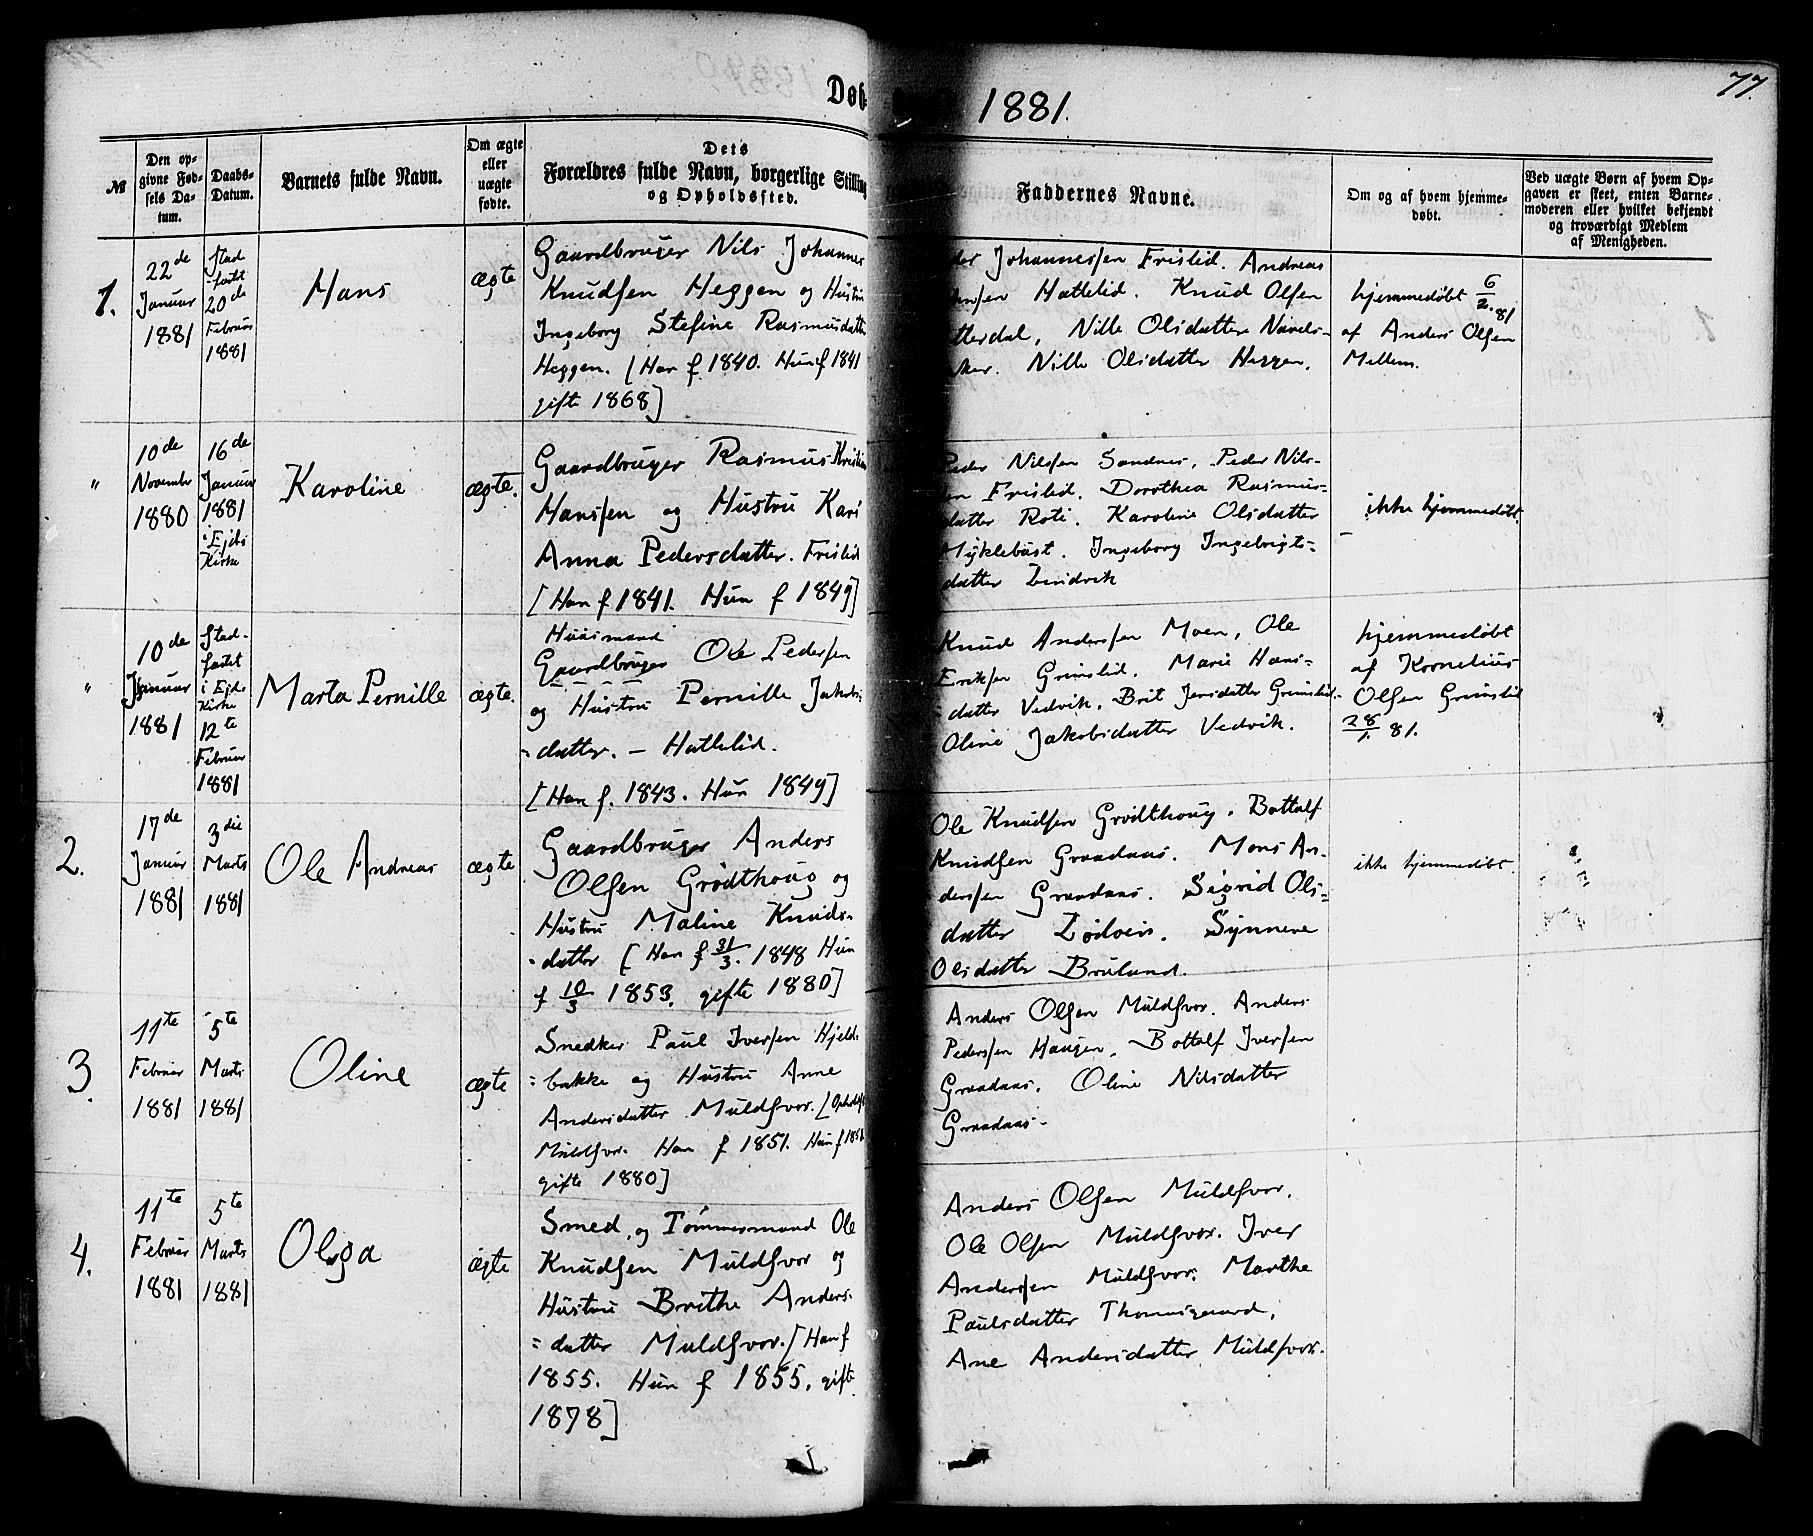 Døb
1881.
77.
№
Den op-
givne Fød-
sels Da-
tum.
Daabs-
Datum.
Barnets fulde Navn.
Om ægte
eller
uægte
fødte.
Dets
Forældres fulde Navn, borgerlige Stilling
og Opholdssted.
Faddernes Navne.
Om og af hvem hjemme-
døbt.
Ved uægte Børn af hvem Op-
gaven er skeet, enten Barne-
moderen eller hvilket bekjendt
og troværdigt Medlem
af Menigheden.
1.
22de
Januar
1881
Stad
-fæstet
20de
Februar
1881
Hans
ægte
Gaardbruger Nils Johannes
Knudsen Heggen og Hustru
Ingeborg Stefine Rasmusdatter
Heggen. [Han f. 1840. Hun f 1841
gifte 1868]
Johannessen Frislid. Andreas
Hattelid. Knud Olsen
Nille Olsdatter Navels-
aker. Nille Olsdatter Heggen.
hjemmedøbt 6/2.81
af Anders Olsen
Mellem.
"
10de
November
1880
16de
Januar
1881
i Ejds
Kirke
Karoline
ægte.
Gaardbruger Rasmus Kristian
Hanssen og Hustru Kari
Anna Pedersdatter. Frislid
[Han f 1841. Hun f 1849]
Peder Nilssen Sandnes, Peder Nils-
sen Frislid. Dorothea Rasmus-
datter Roti. Karoline Olsdatter
Myklebust. Ingeborg Ingebrigts-
datter Lindvik
ikke hjemmedøbt.
"
10de
Januar
1881
Stad-
fæstet
i Ejds
Kirke
12te
Februar
1881
Marta Pernille
ægte.
Huusmand
Gaardbruger Ole Pedersen
og Hustru Pernille Jakobs
-datter. - Hattelid.
[Han f. 1843. Hun 1849]
Knud Anderssen Moen, Ole
Eriksen Grimslid. Marie Hans-
-datter Vedvik. Brit Jensdatter Grimslid.
Oline Jakobsdatter Vedvik.
hjemmedøbt
af Kornelius
Olsen Grimslid
28/1. 81.
2.
17de
Januar
1881
3die
Marts
1881
Ole Andreas
ægte
Gaardbruger Anders
Olsen Grodthoug og
Hustru Maline Knuds-
-datter [Han f 31/3. 1848 Hun
f 10/3 1853. gifte 1880]
Ole Knudsen Grodthoug. Bottolf
Knudsen Graadaas. Mons An-
derssen Graadaas. Sigrid Ols-
datter Lødøen. Synneve
Olsdatter Bruland.
ikke hjemmedøbt.
3.
11te
Februar
1881
5te
Marts
1881
Oline
ægte
Snedker Paul Iversen Hjeld-
-bakke og Hustru Anne
Andersdatter Muldsvor. [Opholdst
Muldsvor. Han f 1851. Hun f 185
gifte 1880]
Anders Olsen Muldsvor. Anders
Pederssen Haugen. Bottolf Iversen
Graadaas. Oline Nilsdatter
Graadaas.
4.
11te
Februar
1881
5te
Marts
1881
Olga
ægte
Smed og Tømmermand Ole
Knudsen Muldsvor og
Hustru Brithe Anders-
-datter Muldsvor. [Han f
1855. Hun f 1855. gift
1878]
Anders Olsen Muldsvor.
Ole Olsen Muldsvor. Iver
Anderssen Muldsvor. Marthe
Paulsdatter Thomasgaard,
Ane Andersdatter Muldsvor.